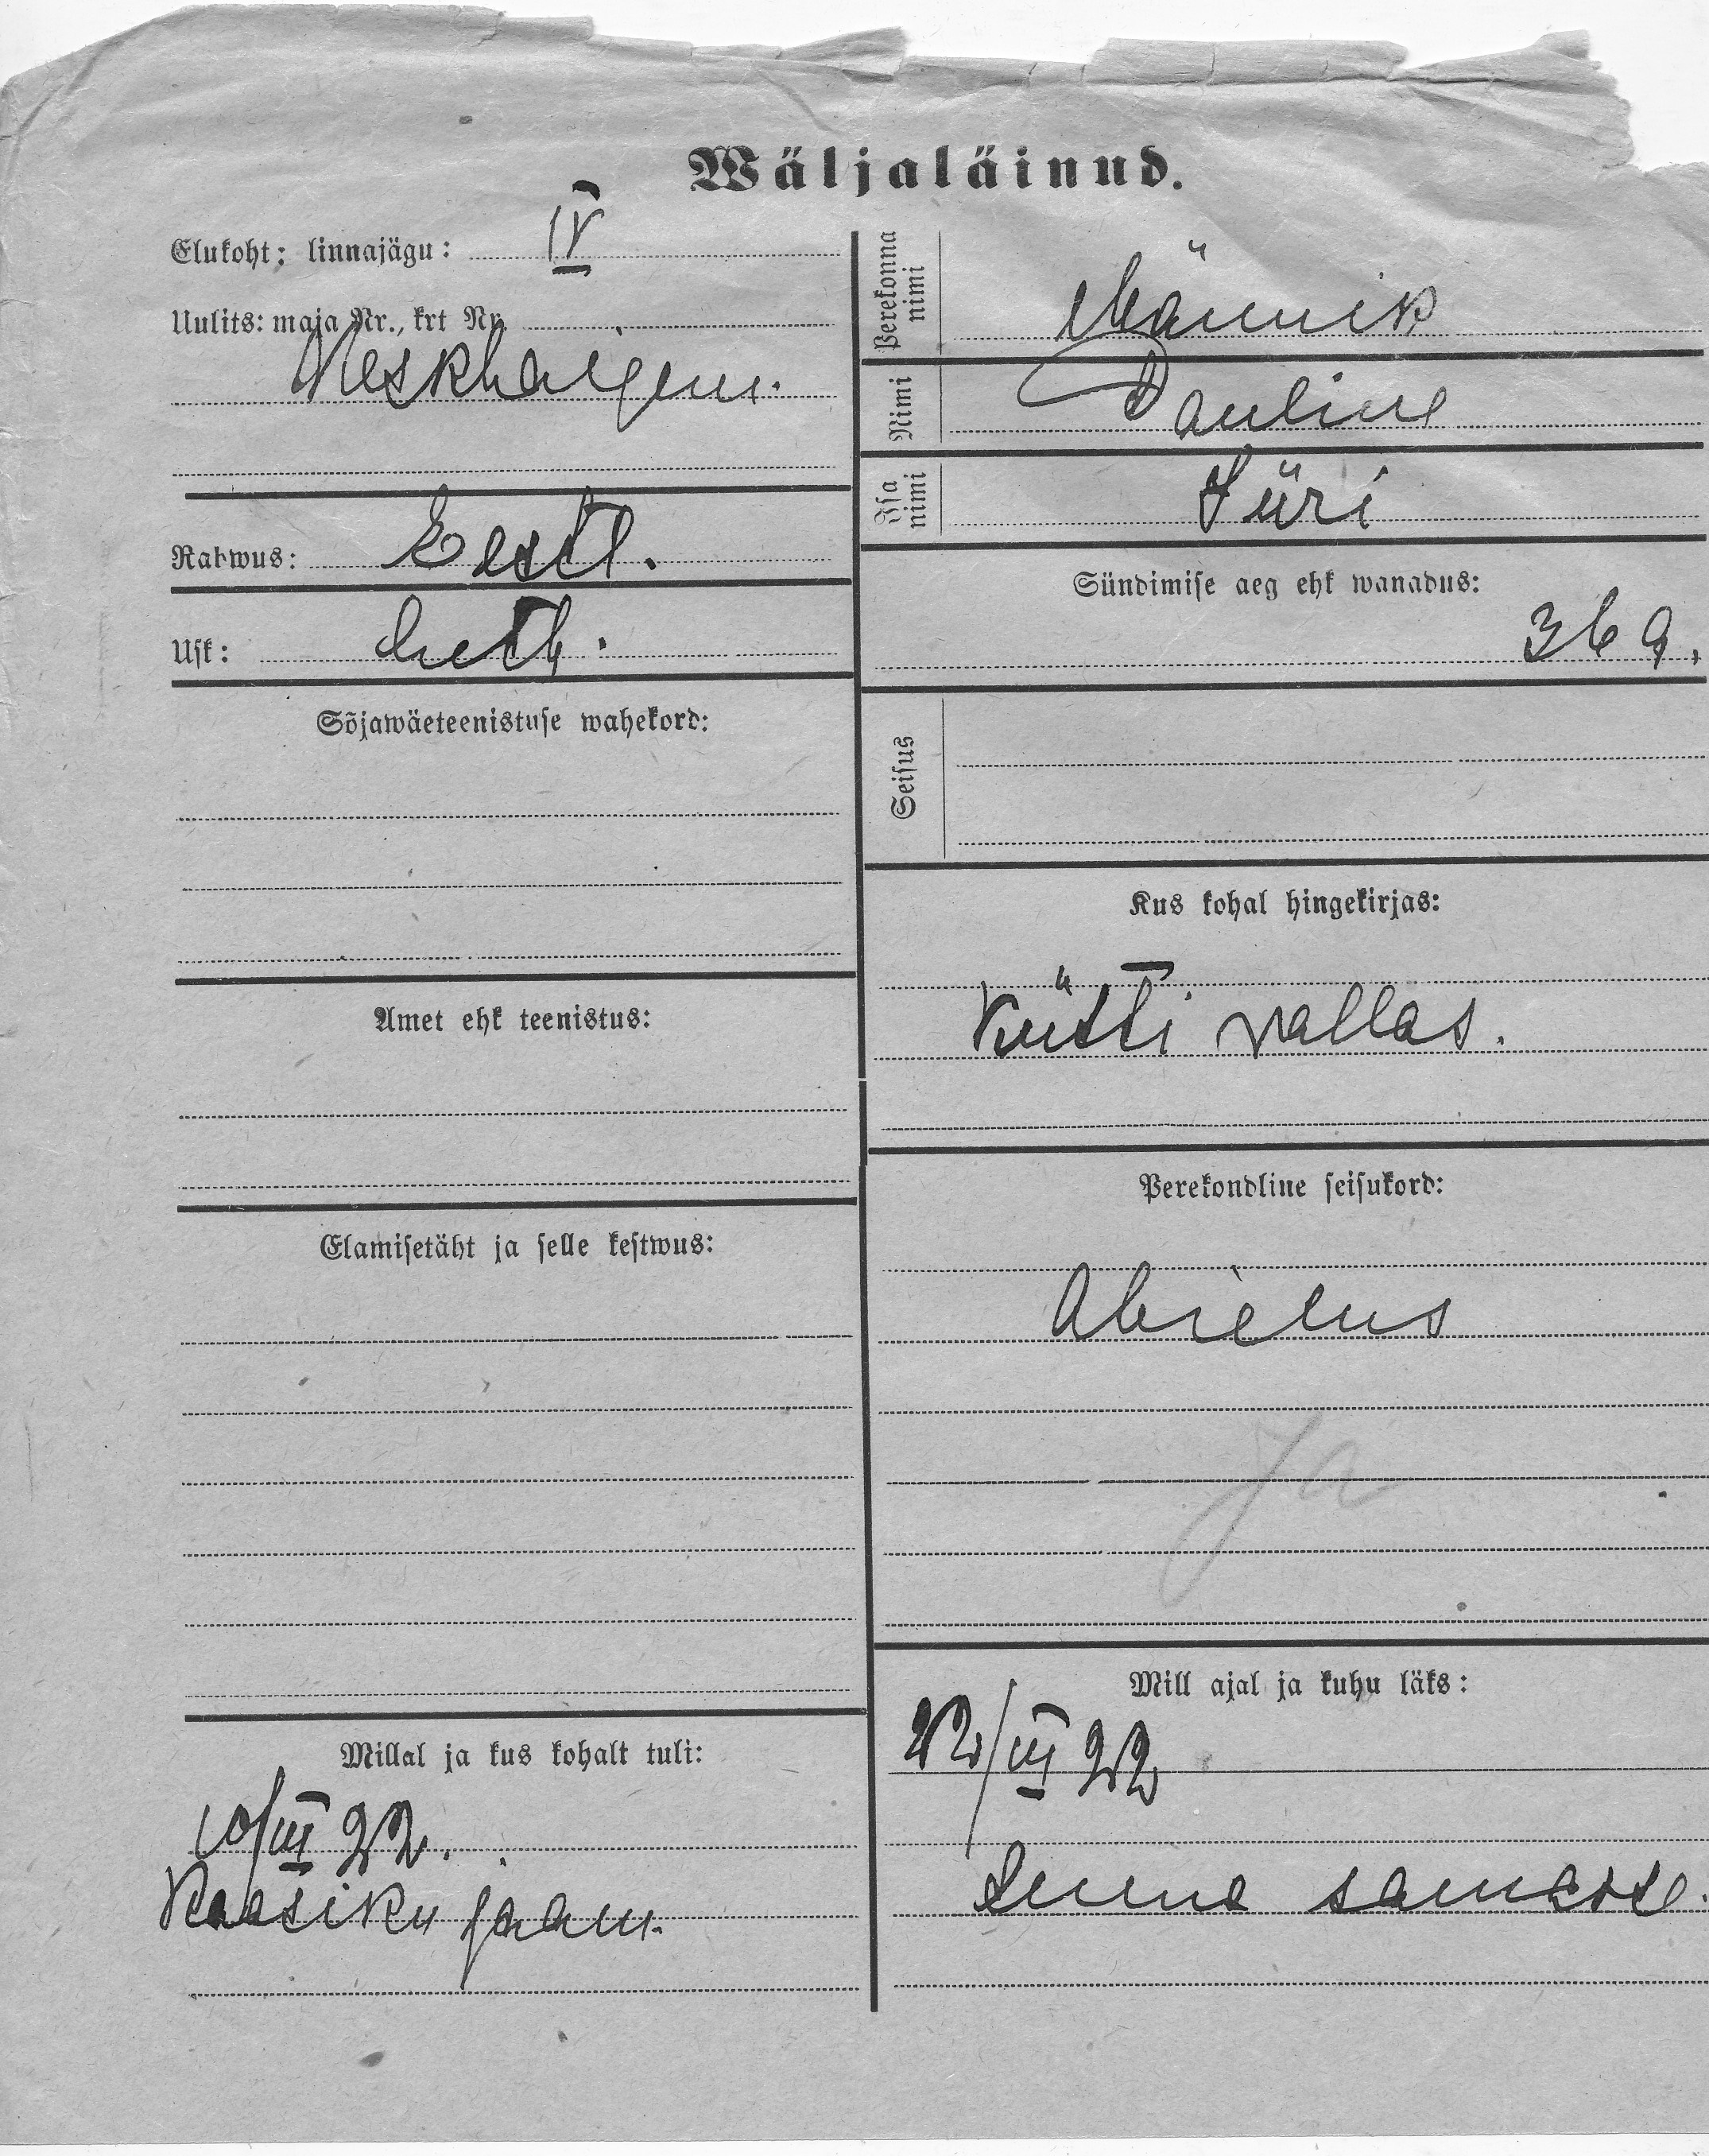 Wäljaläinud.
Elukoht: linnajägu: IV
Uulits: maja Nr., krt Nr.
Keskhaigem.
Rahwus: Eestl.
Usk: Luth.
Sõjawäeteenistuse wahekord:
Amet ehk teenistus:
Elamisetäht ja selle kestwus:
Millal ja kus kohalt tuli:
10/III 22.
Raasiku jaam.
Perekonna nimi Männik
Nimi Pauline
Isa nimi Jüri
Sündimise aeg ehk wanadus:
36 a.
Seisus
Kus kohal hingekirjas:
Kütti vallas.
Perekondline seisukord:
Abielus
Ja
Mill ajal ja kuhu läks:
/III 22
Sinna samasse.